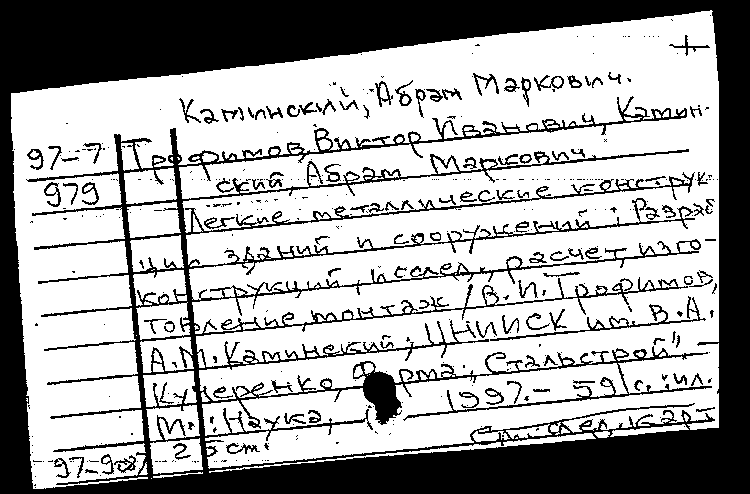 +
Каминский, Абрам Маркович.
97-7 Трофимов, Виктор Иванович, Камин-
979 ский, Абрам Маркович.
Легкие металлические конструк-
ции зданий и сооружений : Разраб
конструкций, исслед., расчет, изго-
товление, монтаж / В. И. Трофимов,
А. М. Каминский ; ЦНИИСК им. В. А.
Кучеренко, Фирма "Стальстрой". -
М. : Наука, 1997. - 591 с. : ил.
25 см.
97-9087
См. след. карт